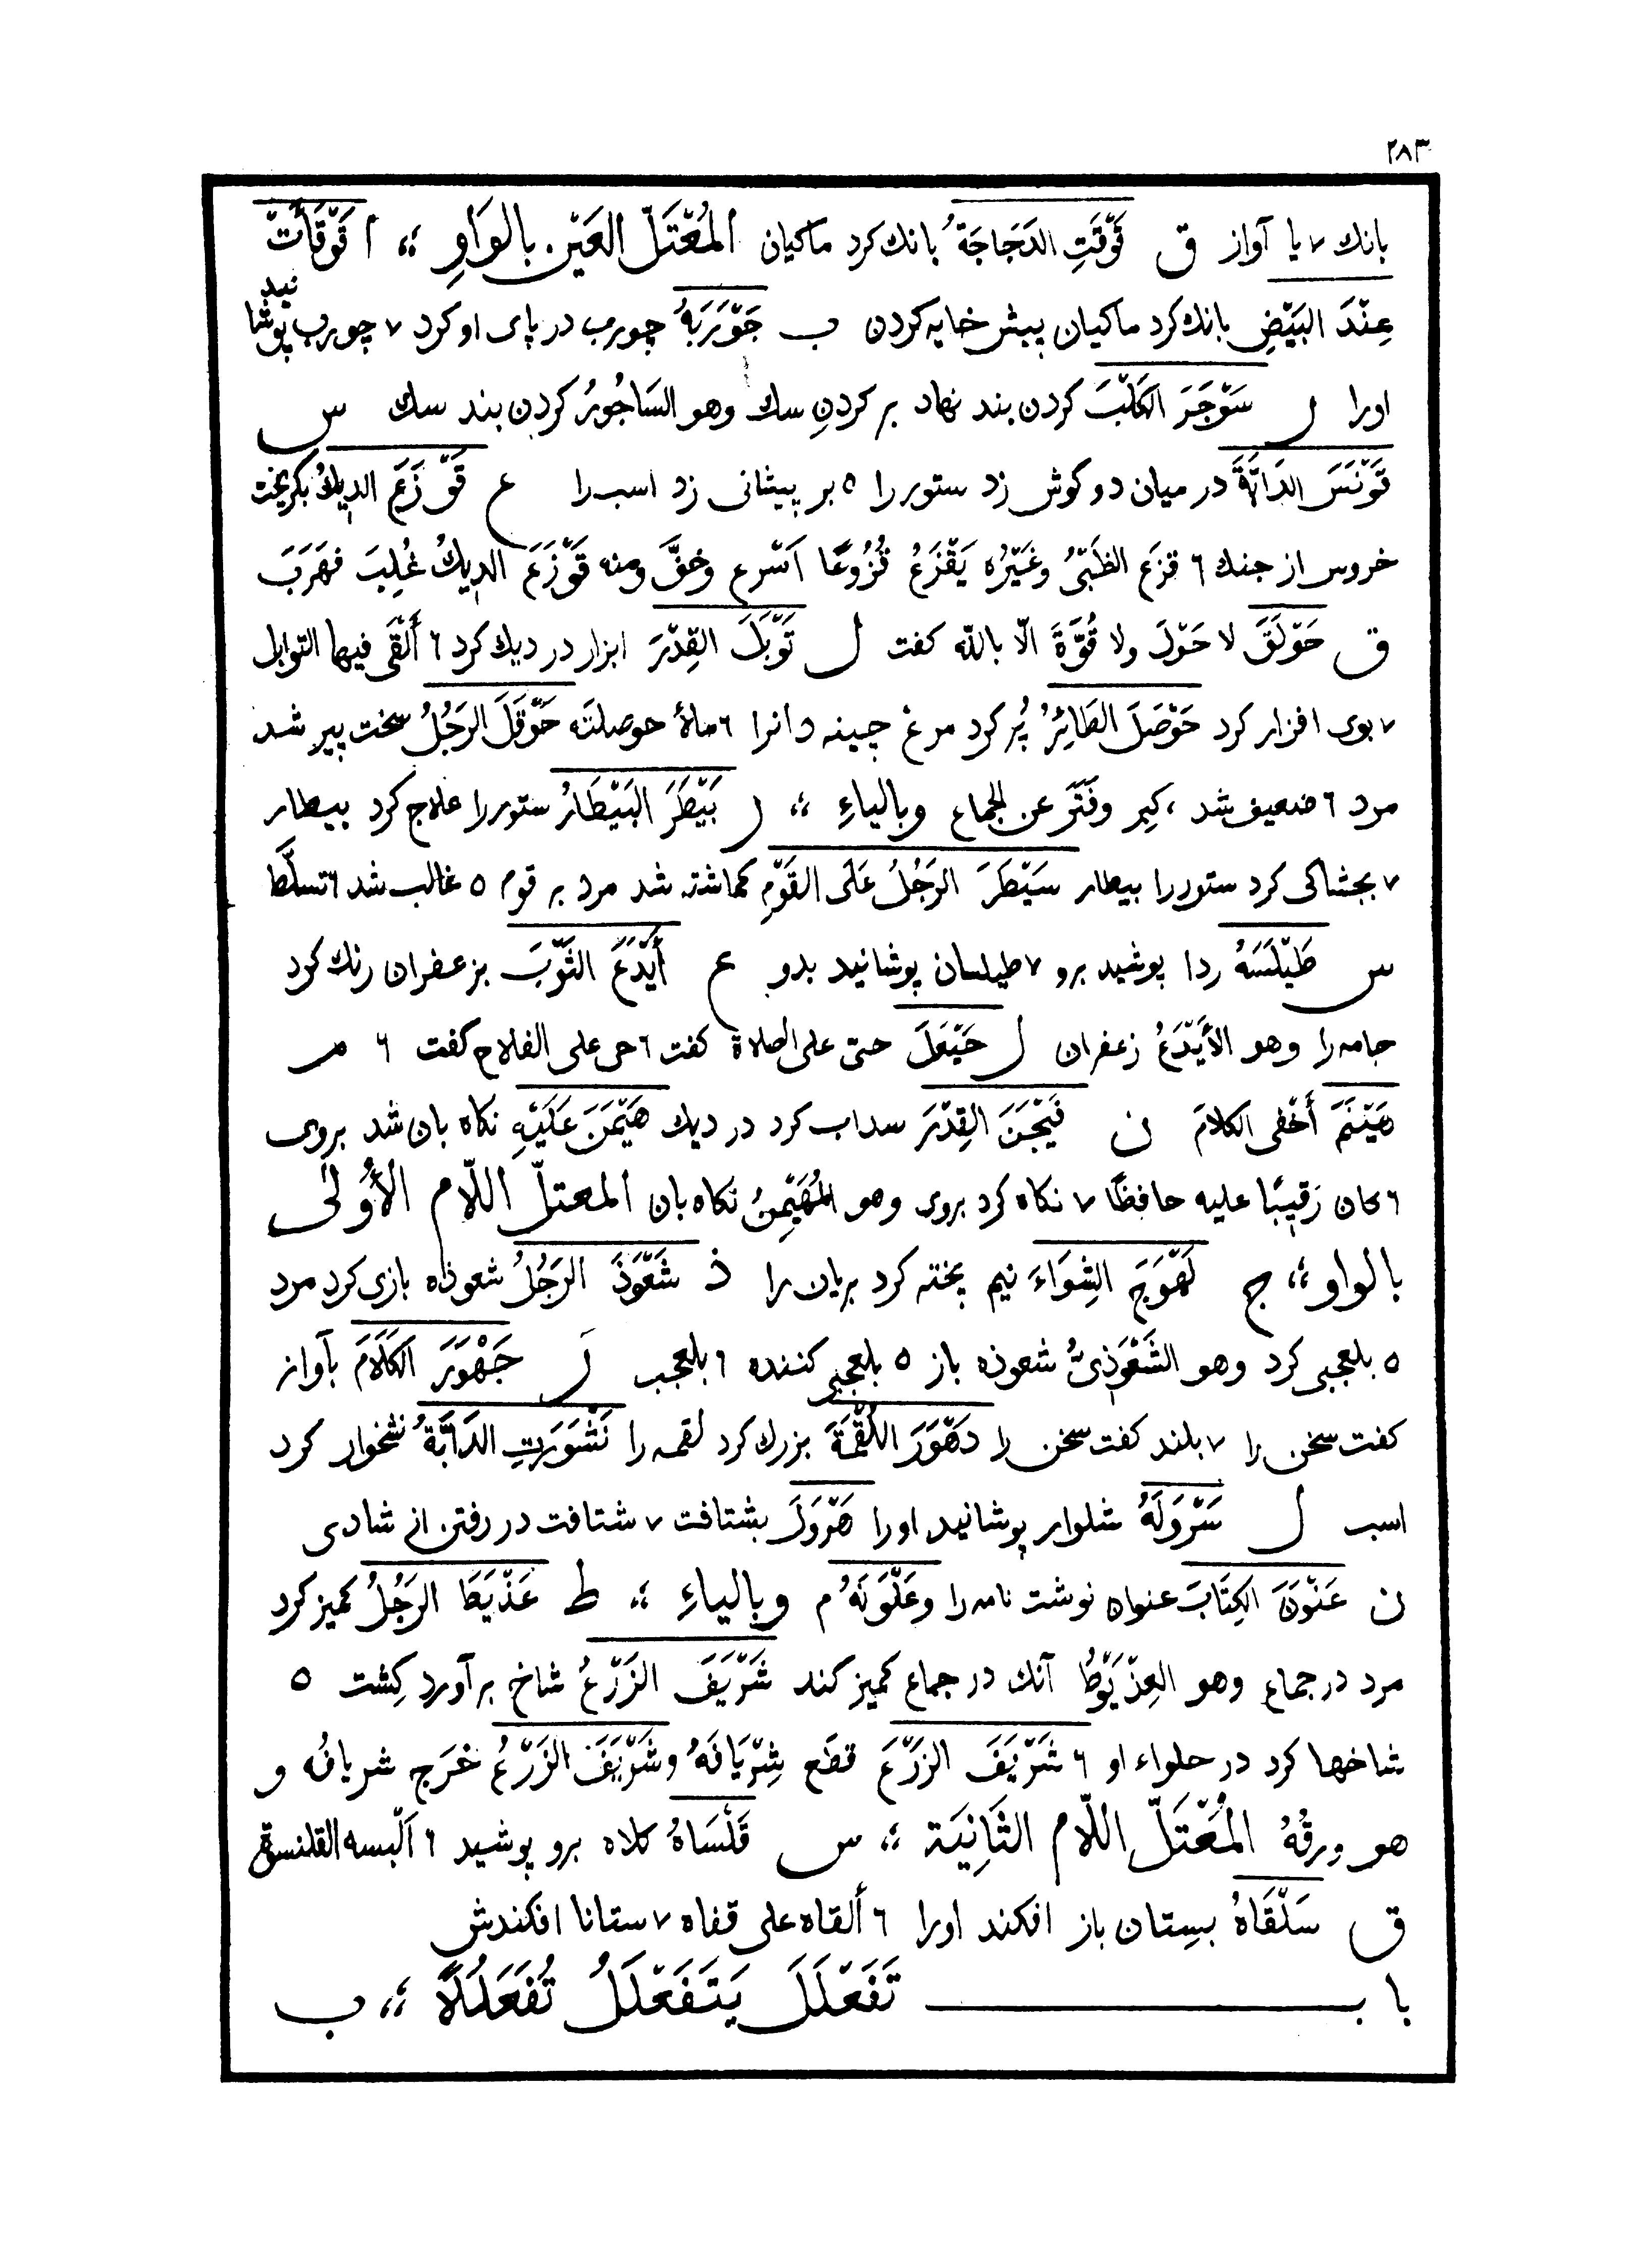 ٢٨٣
بانك ٧ يا آواز ق قَوْقَتِ الدَجَاجَةُ بانك كرد ماكيان المُعْتَلّ العَيْن بالوَاوِ ؛؛ ا قَوْقَأَتْ
عِنْدَ البَيْضِ بانك كرد ماكيان پيش خايه كردن ب جَوْرَبَهُ چورب در پاى او كرد ٧ چورب پوشا نيد
اورا ر سَوْجَرَ الكَلْبَ كردن بند نهاد بر كردنِ سك وهو السَاجُورُ كردن بند سك س
قَوْنَسَ الدَابَّةَ در ميان دو كوش زد ستور را ٥ بر پيشانى زد اسب را ع قَوْزَعَ الديكُ بكريخت
خروس از جنك ٦ قزَع الظَبْىُ وغَيْرُه يَقْزَعُ قُزُوعًا اَسْرع وخفَّ ومنه قَوْزَعَ الديكُ غُلِبَ فهَرَبَ
ق حَوْلَقَ لا حَوْلَ ولا قُوَّةَ الّا بالله كفت ل تَوْبَلَ القِدْرَ ابزار در ديك كرد ٦ أَلْقَى فيها التوابل
٧ بوى افزار كرد حَوْصَلَ الطَائِرُ پُر كرد مرغ چينه دانرا ٦ ملأ حوصلتَه حَوْقَلَ الرَجُلُ سخت پير شد
مرد ٦ ضعيف شد ، كير وفَتَرَ عن الجماع وبالياءِ ؛؛ ر بَيْطَرَ البَيْطَارُ ستور را علاج كرد بيطار
٧ بجشاكى كرد ستور را بيطار سَيْطَرَ الرَجُلُ عَلَى القَوْمِ كماشته شد مرد بر قوم ٥ غالب شد ٦ تسلَّط
س طَيْلَسَهُ ردا پوشيد برو ٧ طيلسان پوشانيد بدو ع أَيْدَعَ الثَوْبَ بزعفران رنك كرد
جامه را وهو الأَيْدَعُ زعفران ل حَيْعَلَ حىّ على الصلاة كفت ٦ حى على الفلاح كفت ٦ م
هَيْنَمَ أَخْفى الكلامَ ن فَيْجَنَ القِدْرَ سداب كرد در ديك هَيْمَنَ عَلَيْهِ نكاه بان شد بروى
٦ كان رَقيبًا عليه حافظًا ٧ نكاه كرد بروى وهو المُهَيْمِنُ نكاه بان المعتلّ اللّام الأُولَى
بالواو ؛؛ ج لَهْوَجَ الشِوَاءَ نيم پخته كرد بريان را ذ شَعْوَذَ الرَجُلُ شعوذه بازى كرد مرد
٥ بلعجبى كرد وهو الشَعْوَذِىُّ شعوذه باز ٥ بلعجبى كننده ٦ بلعجب ر جَهْوَرَ الكَلَامَ بآواز
كفت سخن را ٧ بلند كفت سخن را دَهْوَرَ اللُقْمَةَ بزرك كرد لقمه را نَشْوَرَتِ الدَابَّةُ نشخوار كرد
اسب ل سَرْوَلَهُ شلوار پوشانيد اورا هَرْوَلَ بشتافت ٧ شتافت در رفتن از شادى
ن عَنْوَنَ الكِتَابَ عنوان نوشت نامه را وعَلْوَنَهُ م وبالياءِ ؛؛ ط عَذْيَطَ الرَجُلُ كميز كرد
مرد در جماع وهو العِذْيَوْطُ آنك در جماع كميز كند شَرْيَفَ الزَرْعُ شاخ برآورد كِشت ٥
شاخها كرد در حلواء او ٦ شَرْيَفَ الزَرْعَ قطَع شِرْيَافَهُ وشَرْيَفَ الزَرْعُ خرَج شريافُه و
هو ورقُهُ المُعْتَلّ اللّام الثَانِيَة ؛؛ س قَلْسَاهُ كلاه برو پوشيد ٦ اَلْبسه القلنسوة
ق سَلْقَاهُ بسِتان باز افكند اورا ٦ ألقاه على قفاه ٧ ستانا افكندش
باب تَفَعْلَلَ يَتَفَعْلَلُ تَفَعْلُلًا ؛؛ ب